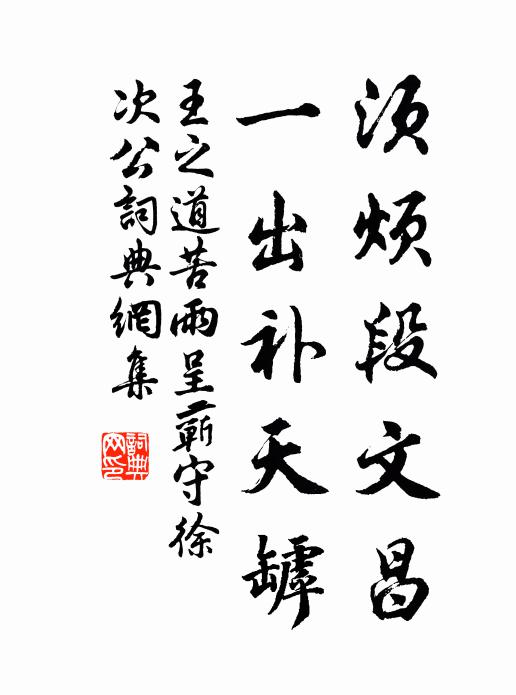 須煩段文昌
一出补天罅
王之道苦雨呈蘄守徐
次公詞典網集
詞典网印